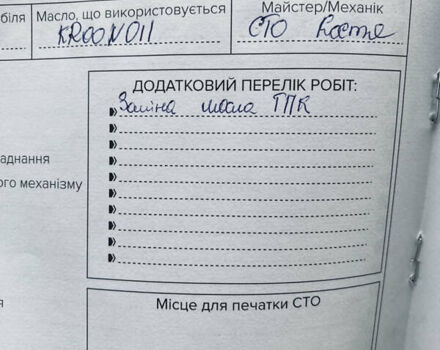 біля Масло, що використовується Майстер/Механік
KROON OIL СТО Костя
ДОДАТКОВИЙ ПЕРЕЛІК РОБІТ:
Заміна масла ГПК
аднання
ого механізму
Місце для печатки СТО
я